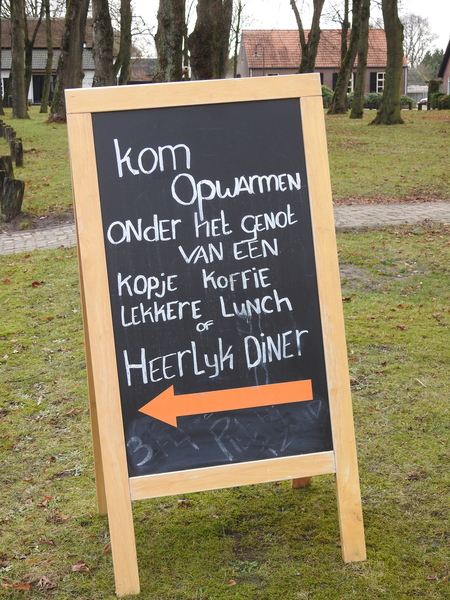 kom
Opwarmen
onder het genot
VAN EEN
kopje koffie
LEKKERE Lunch
OF
HEERLyk DiNER